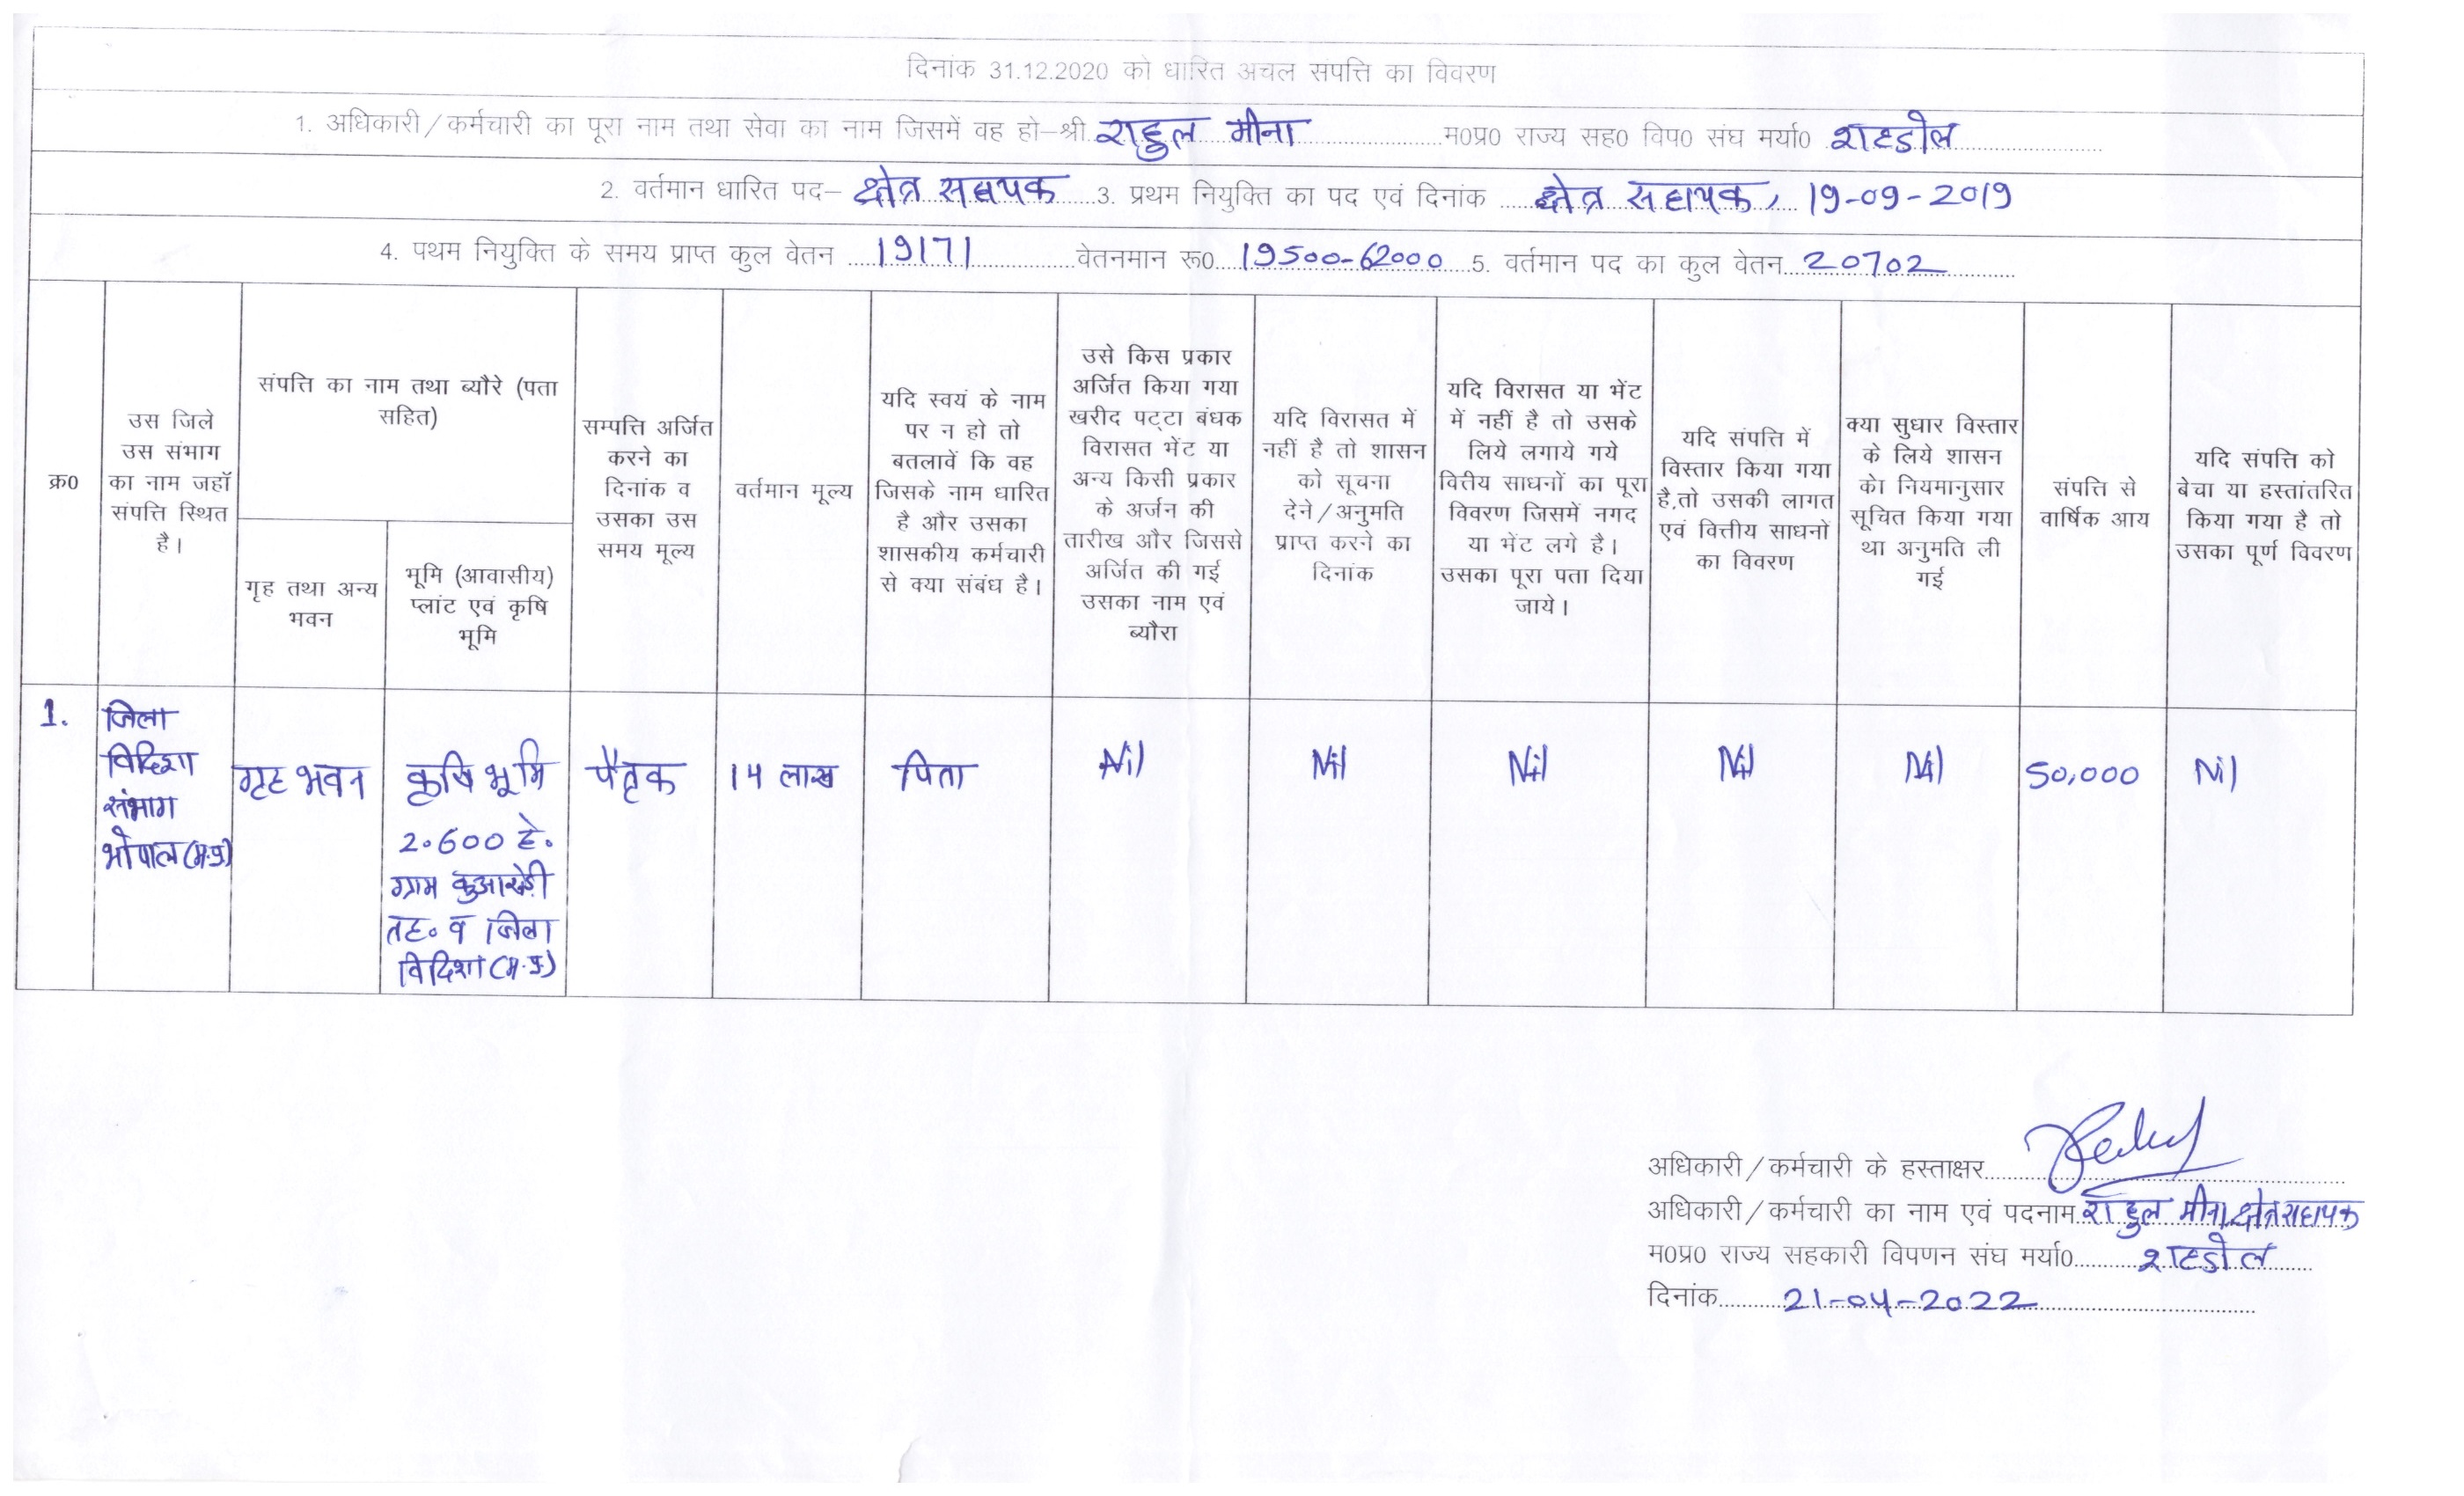 दिनांक 31.12.2020 को धारित अचल संपत्ति का विवरण
1. अधिकारी/कर्मचारी का पूरा नाम तथा सेवा का नाम जिसमें वह हो–श्री राहुल मीना म0प्र0 राज्य सह0 विप0 संघ मर्या0 शहडोल
2. वर्तमान धारित पद– क्षेत्र सहायक 3. प्रथम नियुक्ति का पद एवं दिनांक क्षेत्र सहायक, 19-09-2019
4. पथम नियुक्ति के समय प्राप्त कुल वेतन 19171 वेतनमान रू0 19500-62000 5. वर्तमान पद का कुल वेतन 20702
क्र0
उस जिले
उस संभाग
का नाम जहॉ
संपत्ति स्थित
है।
संपत्ति का नाम तथा ब्यौरे (पता
सहित)
गृह तथा अन्य
भवन
भूमि (आवासीय)
प्लांट एवं कृषि
भूमि
सम्पत्ति अर्जित
करने का
दिनांक व
उसका उस
समय मूल्य
वर्तमान मूल्य
यदि स्वयं के नाम
पर न हो तो
बतलावें कि वह
जिसके नाम धारित
है और उसका
शासकीय कर्मचारी
से क्या संबंध है।
उसे किस प्रकार
अर्जित किया गया
खरीद पट्टा बंधक
विरासत भेंट या
अन्य किसी प्रकार
के अर्जन की
तारीख और जिससे
अर्जित की गई
उसका नाम एवं
ब्यौरा
यदि विरासत में
नहीं है तो शासन
को सूचना
देने/अनुमति
प्राप्त करने का
दिनांक
यदि विरासत या भेंट
में नहीं है तो उसके
लिये लगाये गये
वित्तीय साधनों का पूरा
विवरण जिसमें नगद
या भेंट लगे है।
उसका पूरा पता दिया
जाये।
यदि संपत्ति में
विस्तार किया गया
है,तो उसकी लागत
एवं वित्तीय साधनों
का विवरण
क्या सुधार विस्तार
के लिये शासन
केा नियमानुसार
सूचित किया गया
था अनुमति ली
गई
संपत्ति से
वार्षिक आय
यदि संपत्ति को
बेचा या हस्तांतरित
किया गया है तो
उसका पूर्ण विवरण
1.
जिला
विदिशा
संभाग
भोपाल (म.प्र.)
गृह भवन
कृषि भूमि
2.600 हे.
ग्राम कुआखेड़ी
तह. व जिला
विदिशा (म.प्र.)
पैतृक
14 लाख
पिता
Nil
Nil
Nil
Nil
Nil
50,000
Nil
अधिकारी/कर्मचारी के हस्ताक्षर
अधिकारी/कर्मचारी का नाम एवं पदनाम राहुल मीना क्षेत्र सहायक
म0प्र0 राज्य सहकारी विपणन संघ मर्या0 शहडोल
दिनांक 21-04-2022